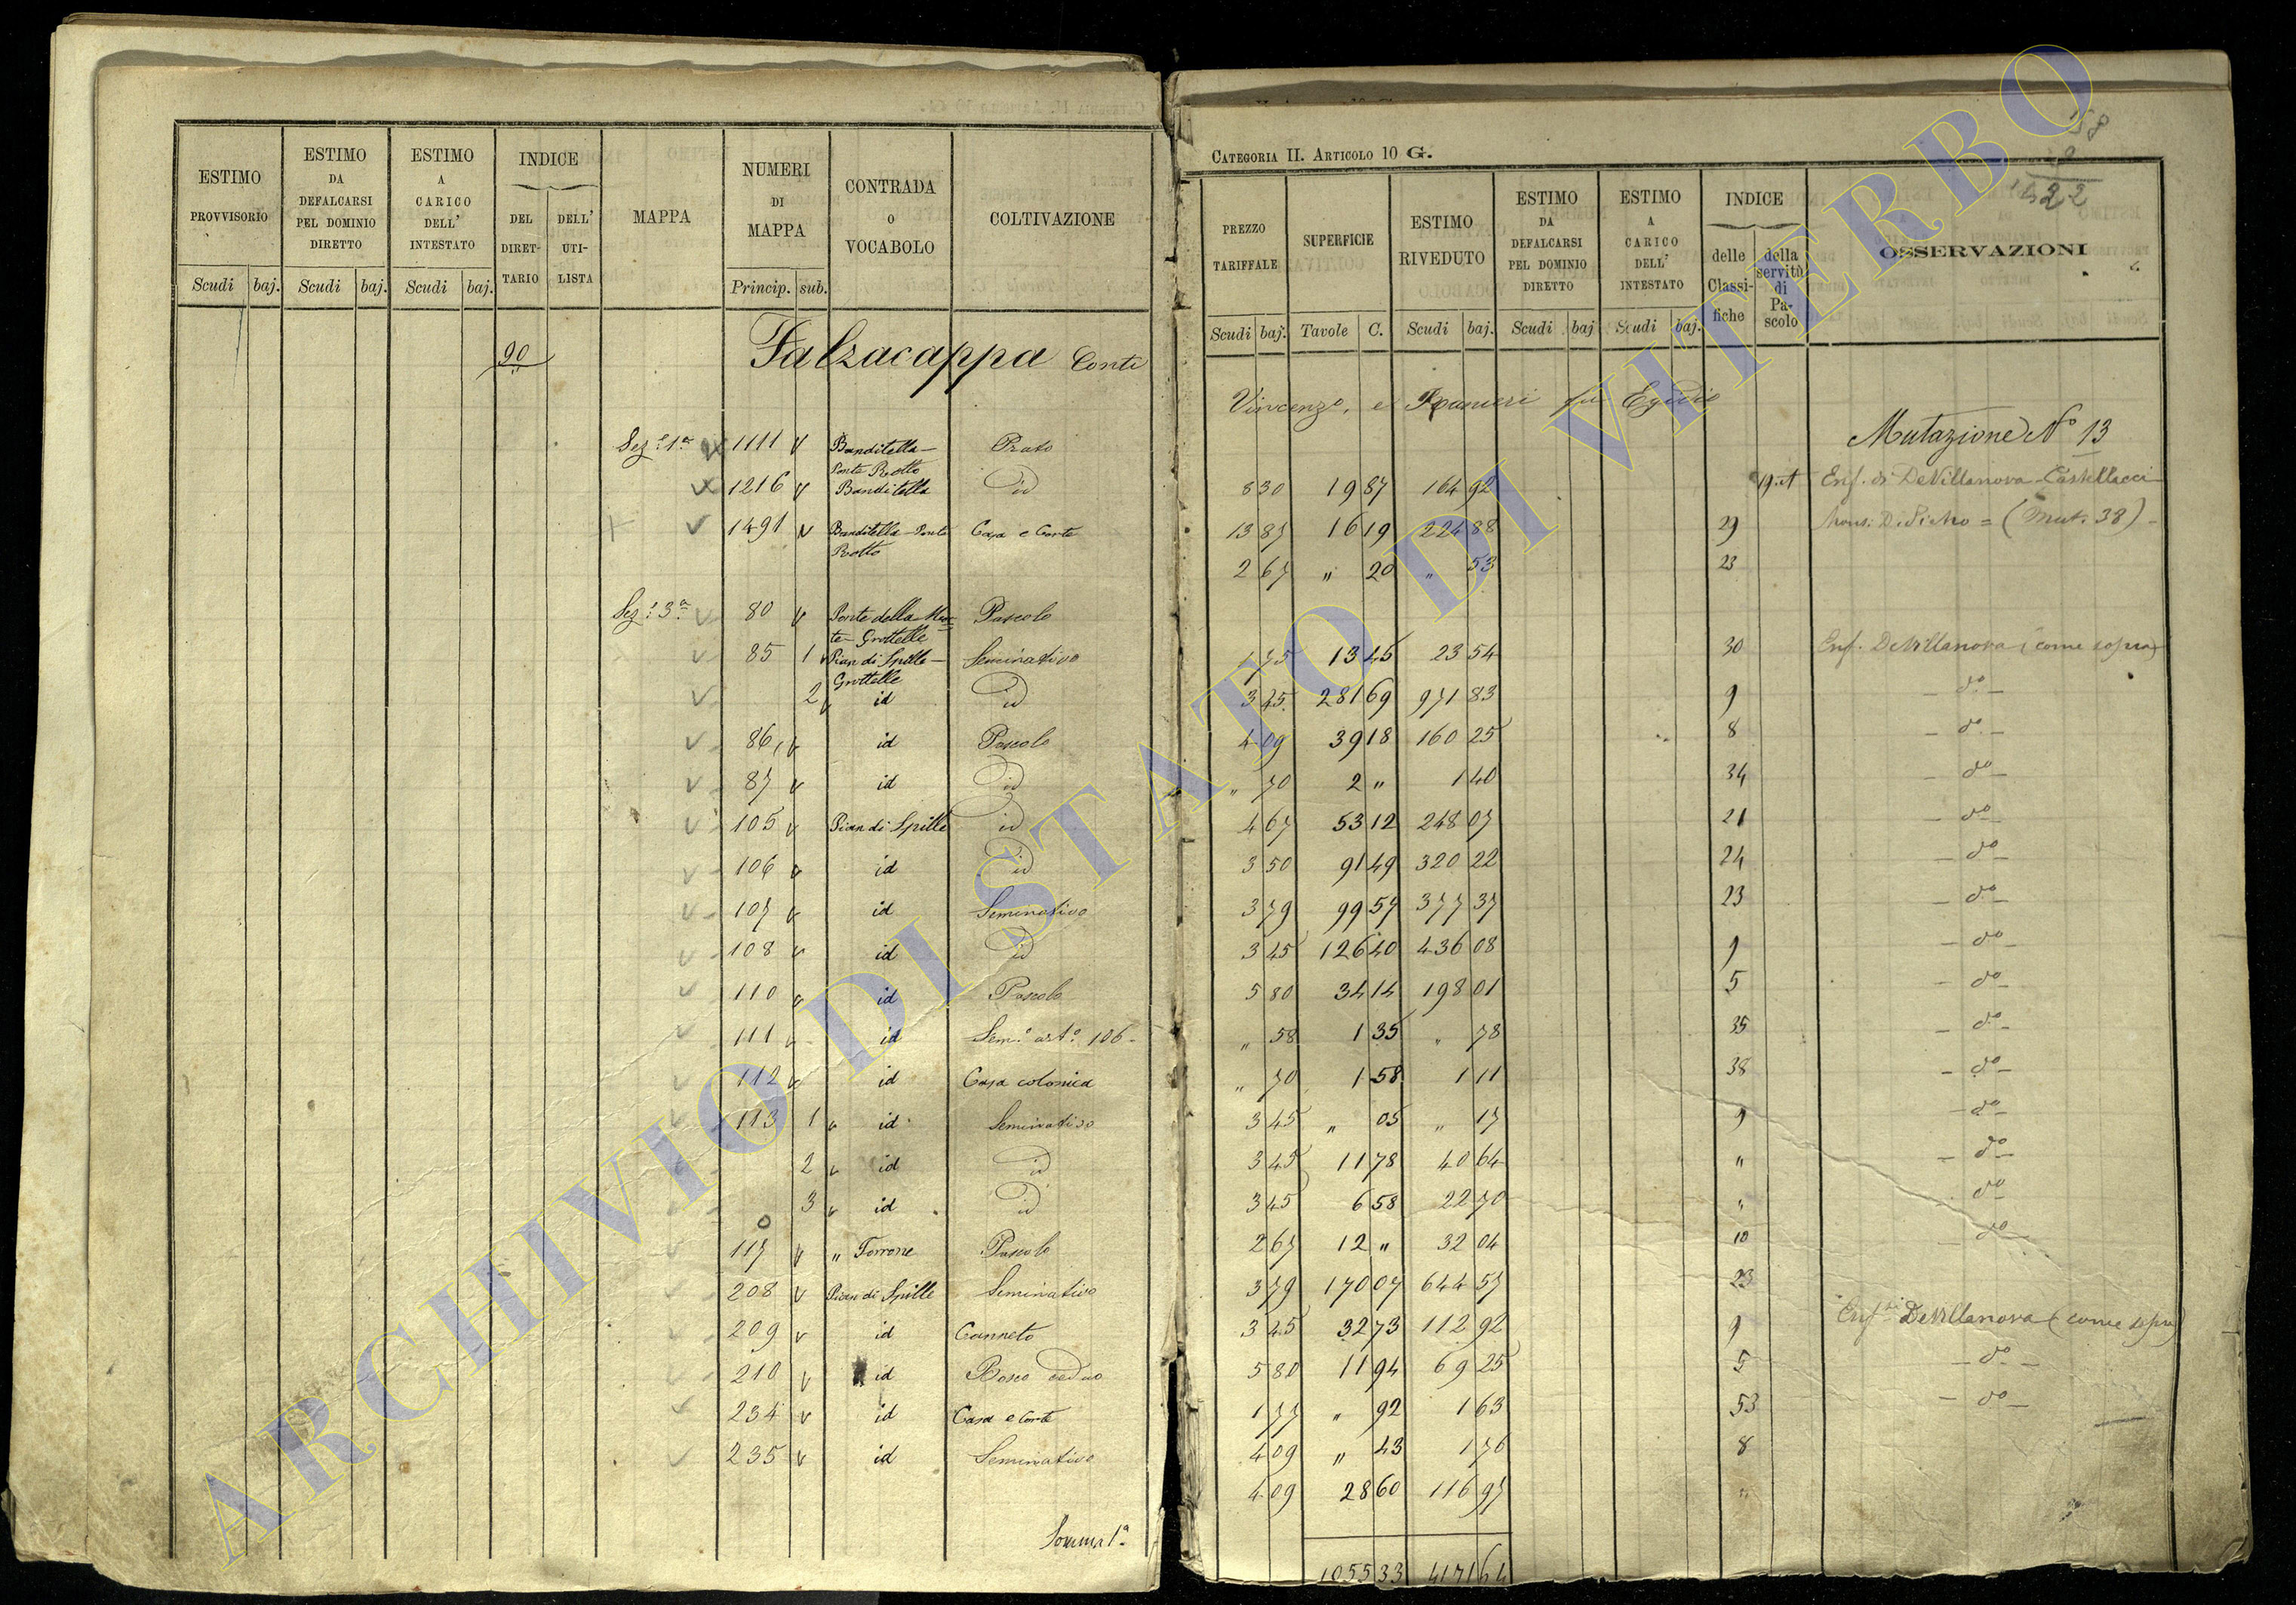 ESTIMO PROVVISORIO Scudi baj.
ESTIMO DA DEFALCARSI PEL DOMINIO DIRETTO Scudi baj.
ESTIMO A CARICO DELL' INTESTATO Scudi baj.
INDICE DEL DIRET-TARIO DELL' UTI-LISTA
MAPPA
NUMERI DI MAPPA Princip. sub.
CONTRADA O VOCABOLO
COLTIVAZIONE
90 Falzacappa Conti
Sez.e 1a 1111 Banditella - Ponte Rotto Prato
1216 Banditella id
1491 Banditella - Ponte Rotto Casa e Corte
Sez.e 3a 80 Ponte della Mar=te - Grottelle Pascolo
85 1 Pian di Spille - Grottelle Seminativo
2 id id
86 id Pascolo
87 id id
105 Pian di Spille id
106 id id
107 id Seminativo
108 id id
110 id Pascolo
111 id Sem.o art.o 106
112 id Casa colonica
113 1 id Seminativo
2 id id
3 id id
117 " Torrone Pascolo
208 Pian di Spille Seminativo
209 id Canneto
210 id Bosco ceduo
234 id Casa e Corte
235 id Seminativo
Somma 1a
58
1422
CATEGORIA II. ARTICOLO 10 G.
PREZZO TARIFFALE Scudi baj.
SUPERFICIE Tavole C.
ESTIMO RIVEDUTO Scudi baj.
ESTIMO DA DEFALCARSI PEL DOMINIO DIRETTO Scudi baj
ESTIMO A CARICO DELL' INTESTATO Scudi baj.
INDICE delle Classi-fiche della servitù di Pa-scolo
OSSERVAZIONI
Vincenzo, e Ranieri fu Egidio
Mutazione No 13
8 30 19 87 164 92 Enf. di DeVillanova-Castellacci
13 87 16 19 224 88 29 (Mut. 38)
2 67 " 20 " 53 23
1 75 13 45 23 54 30 Enf. DeVillanova (come sopra)
3 45 281 69 971 83 9 - do -
4 09 39 18 160 25 8 - do -
" 70 2 " 1 40 34 - do -
4 67 53 12 248 07 21 - do -
3 50 91 49 320 22 24 - do -
3 79 99 57 377 37 23 - do -
3 45 126 40 436 08 9 - do -
5 80 34 14 198 01 5 - do -
" 58 1 35 " 78 35 - do -
" 70 1 58 1 11 38 - do -
3 45 " 05 " 17 9 - do -
3 45 11 78 40 64 " - do -
3 45 6 58 22 70 " do
2 67 12 " 32 04 10 - do -
3 79 170 07 644 57 23
3 45 32 73 112 92 9 Enf. di DeVillanova (come sopra)
5 80 11 94 69 25 5 - do -
1 77 " 92 1 63 53 - do -
4 09 " 43 1 76 8
4 09 28 60 116 97 "
1055 33 4171 64
ARCHIVIO DI STATO DI VITERBO